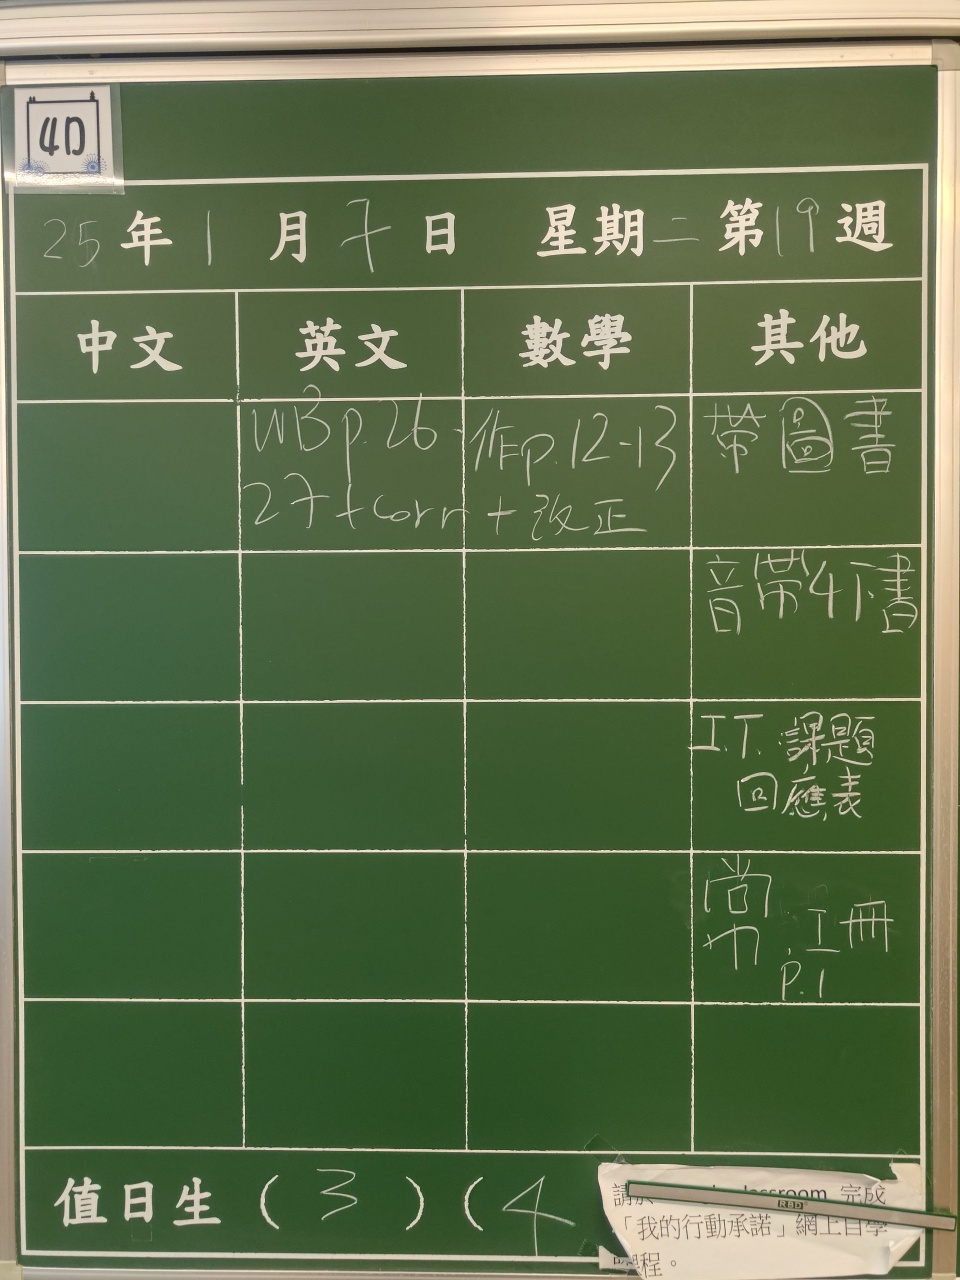 4D
25年1月7日 星期二第19週
中文 英文 數學 其他
WB p.26-
27+corr
作p.12-13
+改正
帶圖書
音帶4下書
I.T. 課題
回應表
常
工冊
p.1
值日生(3)(4
請於 classroom 完成
「我的行動承諾」網上自學
課程。
R&D